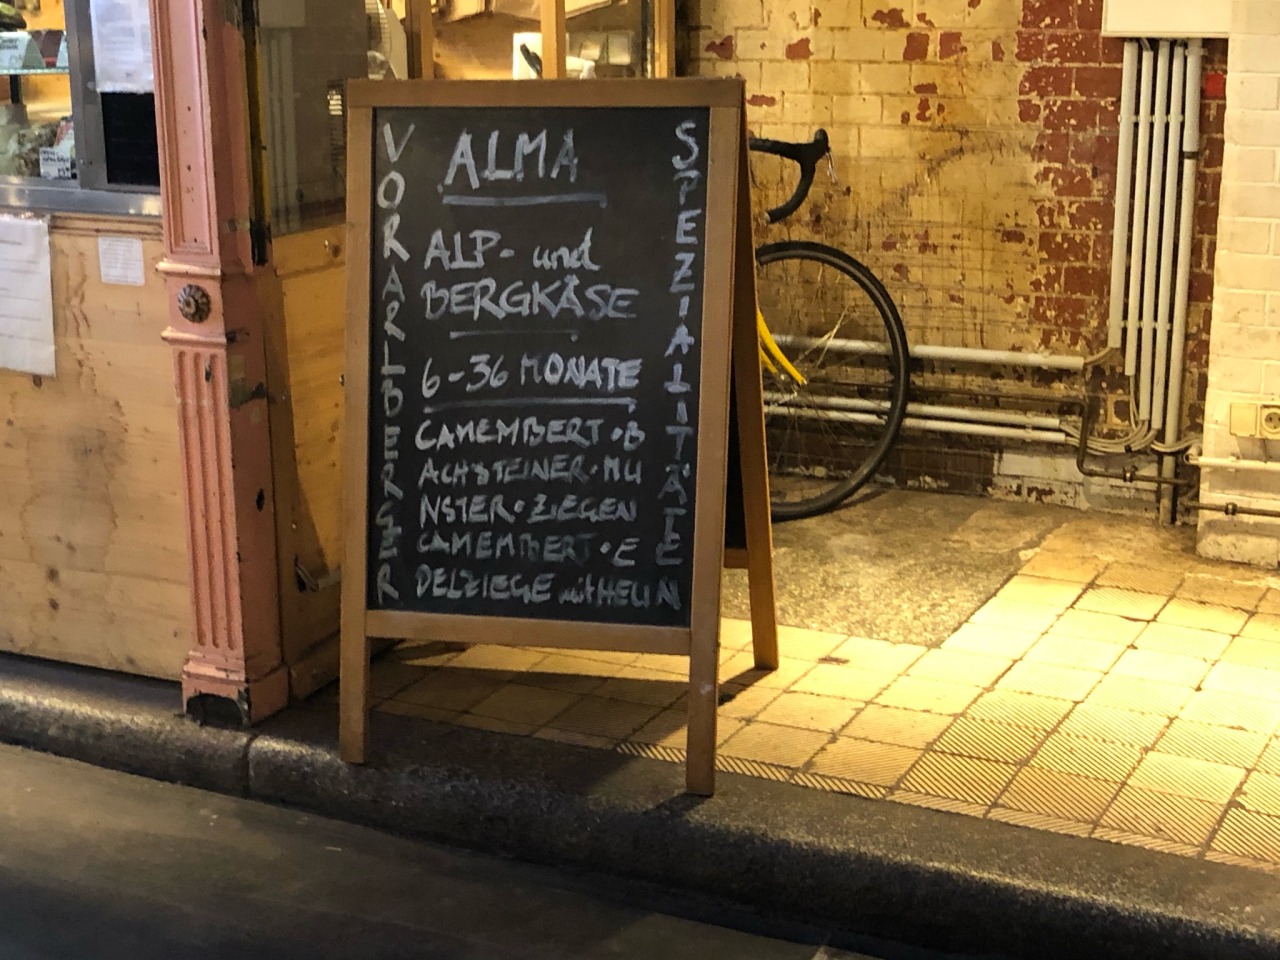 VORARLBERGER
ALMA
ALP- und
BERGKÄSE
6-36 MONATE
CAMEMBERT • B
ACHSTEINER • MU
NSTER • ZIEGEN
CAMEMBERT • E
DELZIEGE mit HEU N
SPEZIALITÄTE